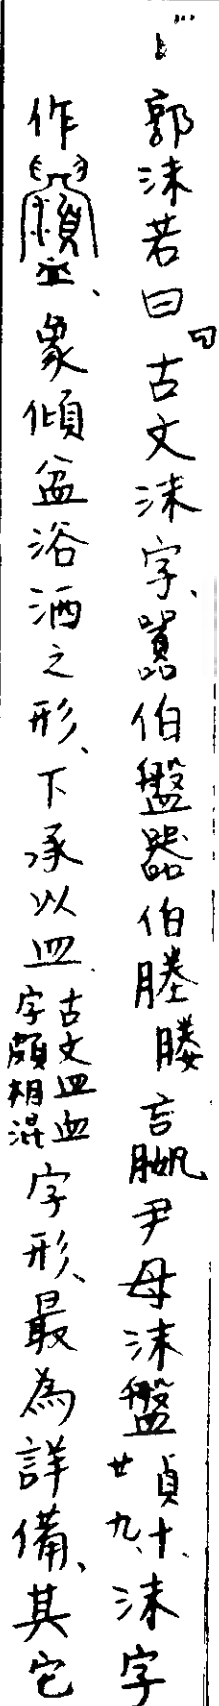 郭沫若曰「古文沫字、嚚伯盤器伯塍媵嬴尹母沫盤貞十、廿九、沫字
作、象傾盆浴洒之形、下承以皿古文皿血字頗相混字形、最為詳備、其它